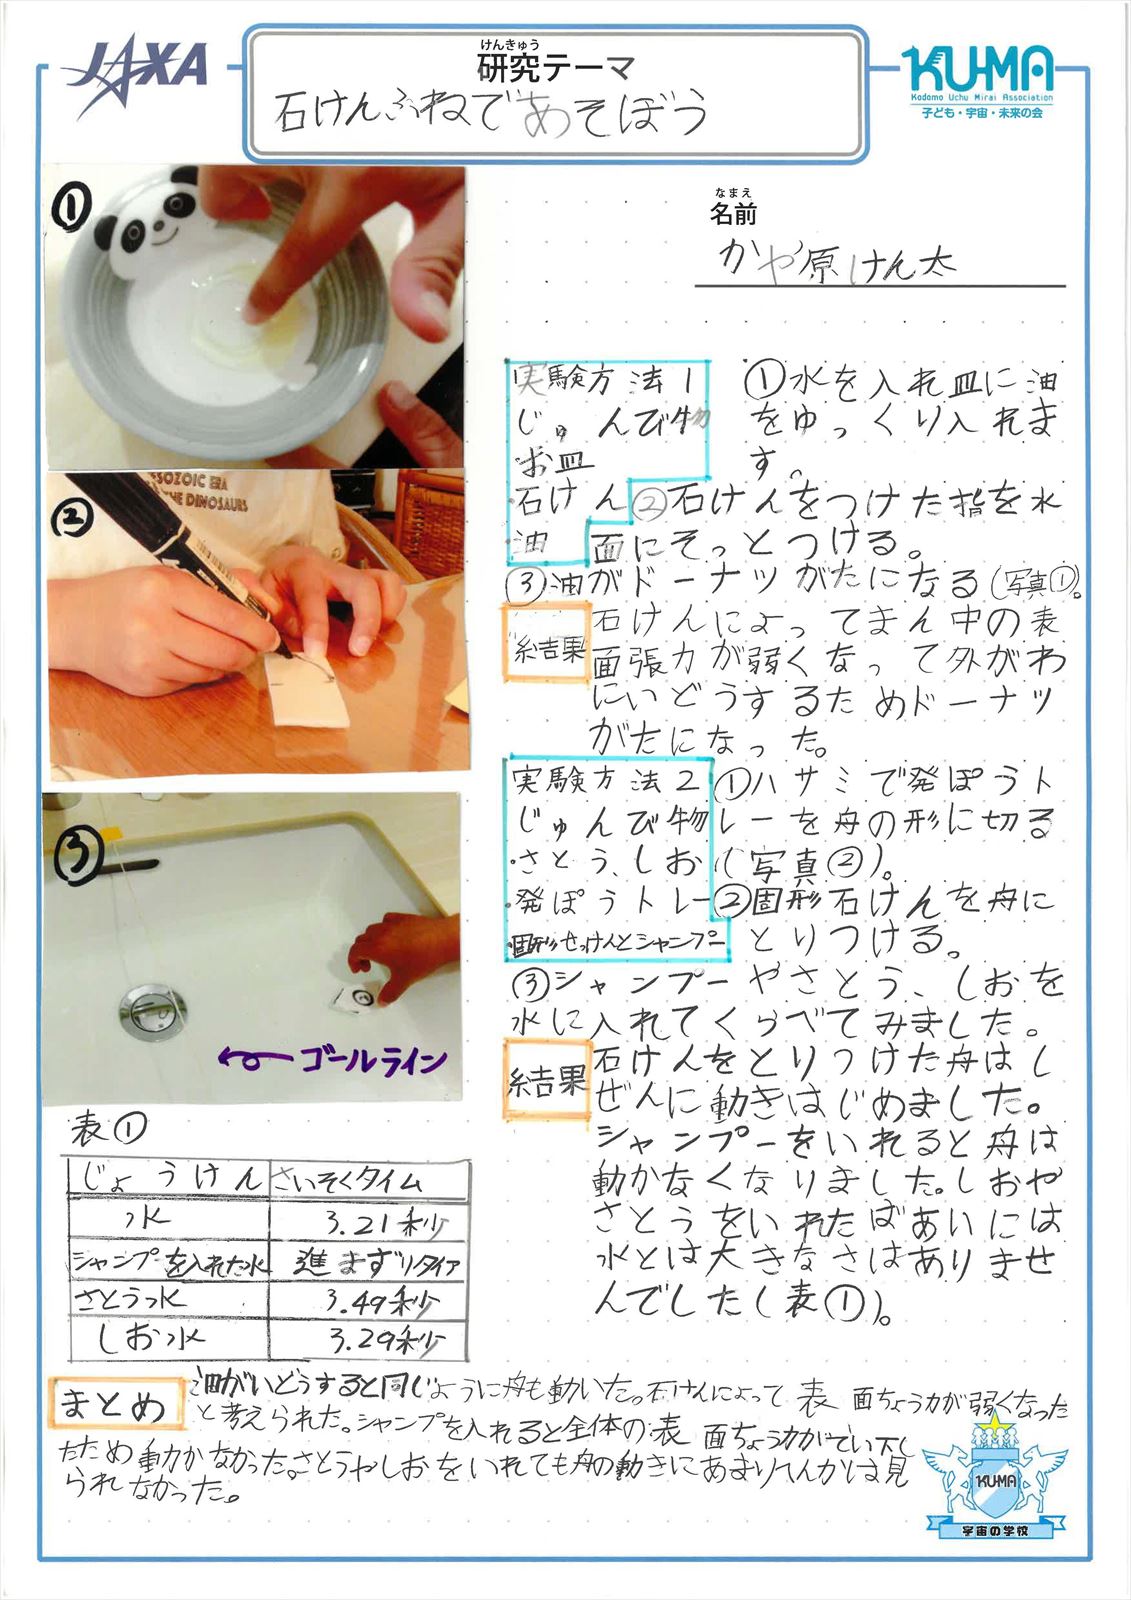 JAXA
けんきゅう
研究テーマ
石けんふねであそぼう
KU-MA
Kodomo Uchu Mirai Association
子ども・宇宙・未来の会
なまえ
名前
かや原けん太
①
②
SOZOIC ERA
THE DINOSAURS
③
②
ゴールライン
実験方法1
じゅんび物
・お皿
・石けん
・油
①水を入れ皿に油
をゆっくり入れま
す。
②石けんをつけた指を水
面にそっとつける。
③油がドーナツがたになる(写真①)。
結果
石けんによってまん中の表
面張力が弱くなって外がわ
にいどうするためドーナツ
がたになった。
実験方法2
じゅんび物
・さとう、しお
・発ぽうトレー
・固形せっけんとシャンプー
①ハサミで発ぽうト
レーを舟の形に切る
(写真②)。
②固形石けんを舟に
とりつける。
③シャンプーやさとう、しおを
水に入れてくらべてみました。
結果
石けんをとりつけた舟はし
ぜんに動きはじめました。
シャンプーをいれると舟は
動かなくなりました。しおや
さとうをいれたばあいには
水とは大きなさはありませ
んでした(表①)。
表①
じょうけん さいそくタイム
水 3.21秒
シャンプーを入れた水 進まずリタイア
さとう水 3.49秒
しお水 3.29秒
まとめ
油がいどうすると同じように舟も動いた。石けんによって表面ちょう力が弱くなった
と考えられた。シャンプを入れると全体の表面ちょう力がてい下し
たため動かなかった。さとうやしおをいれても舟の動きにあまりへんかは見
られなかった。
KUMA
宇宙の学校